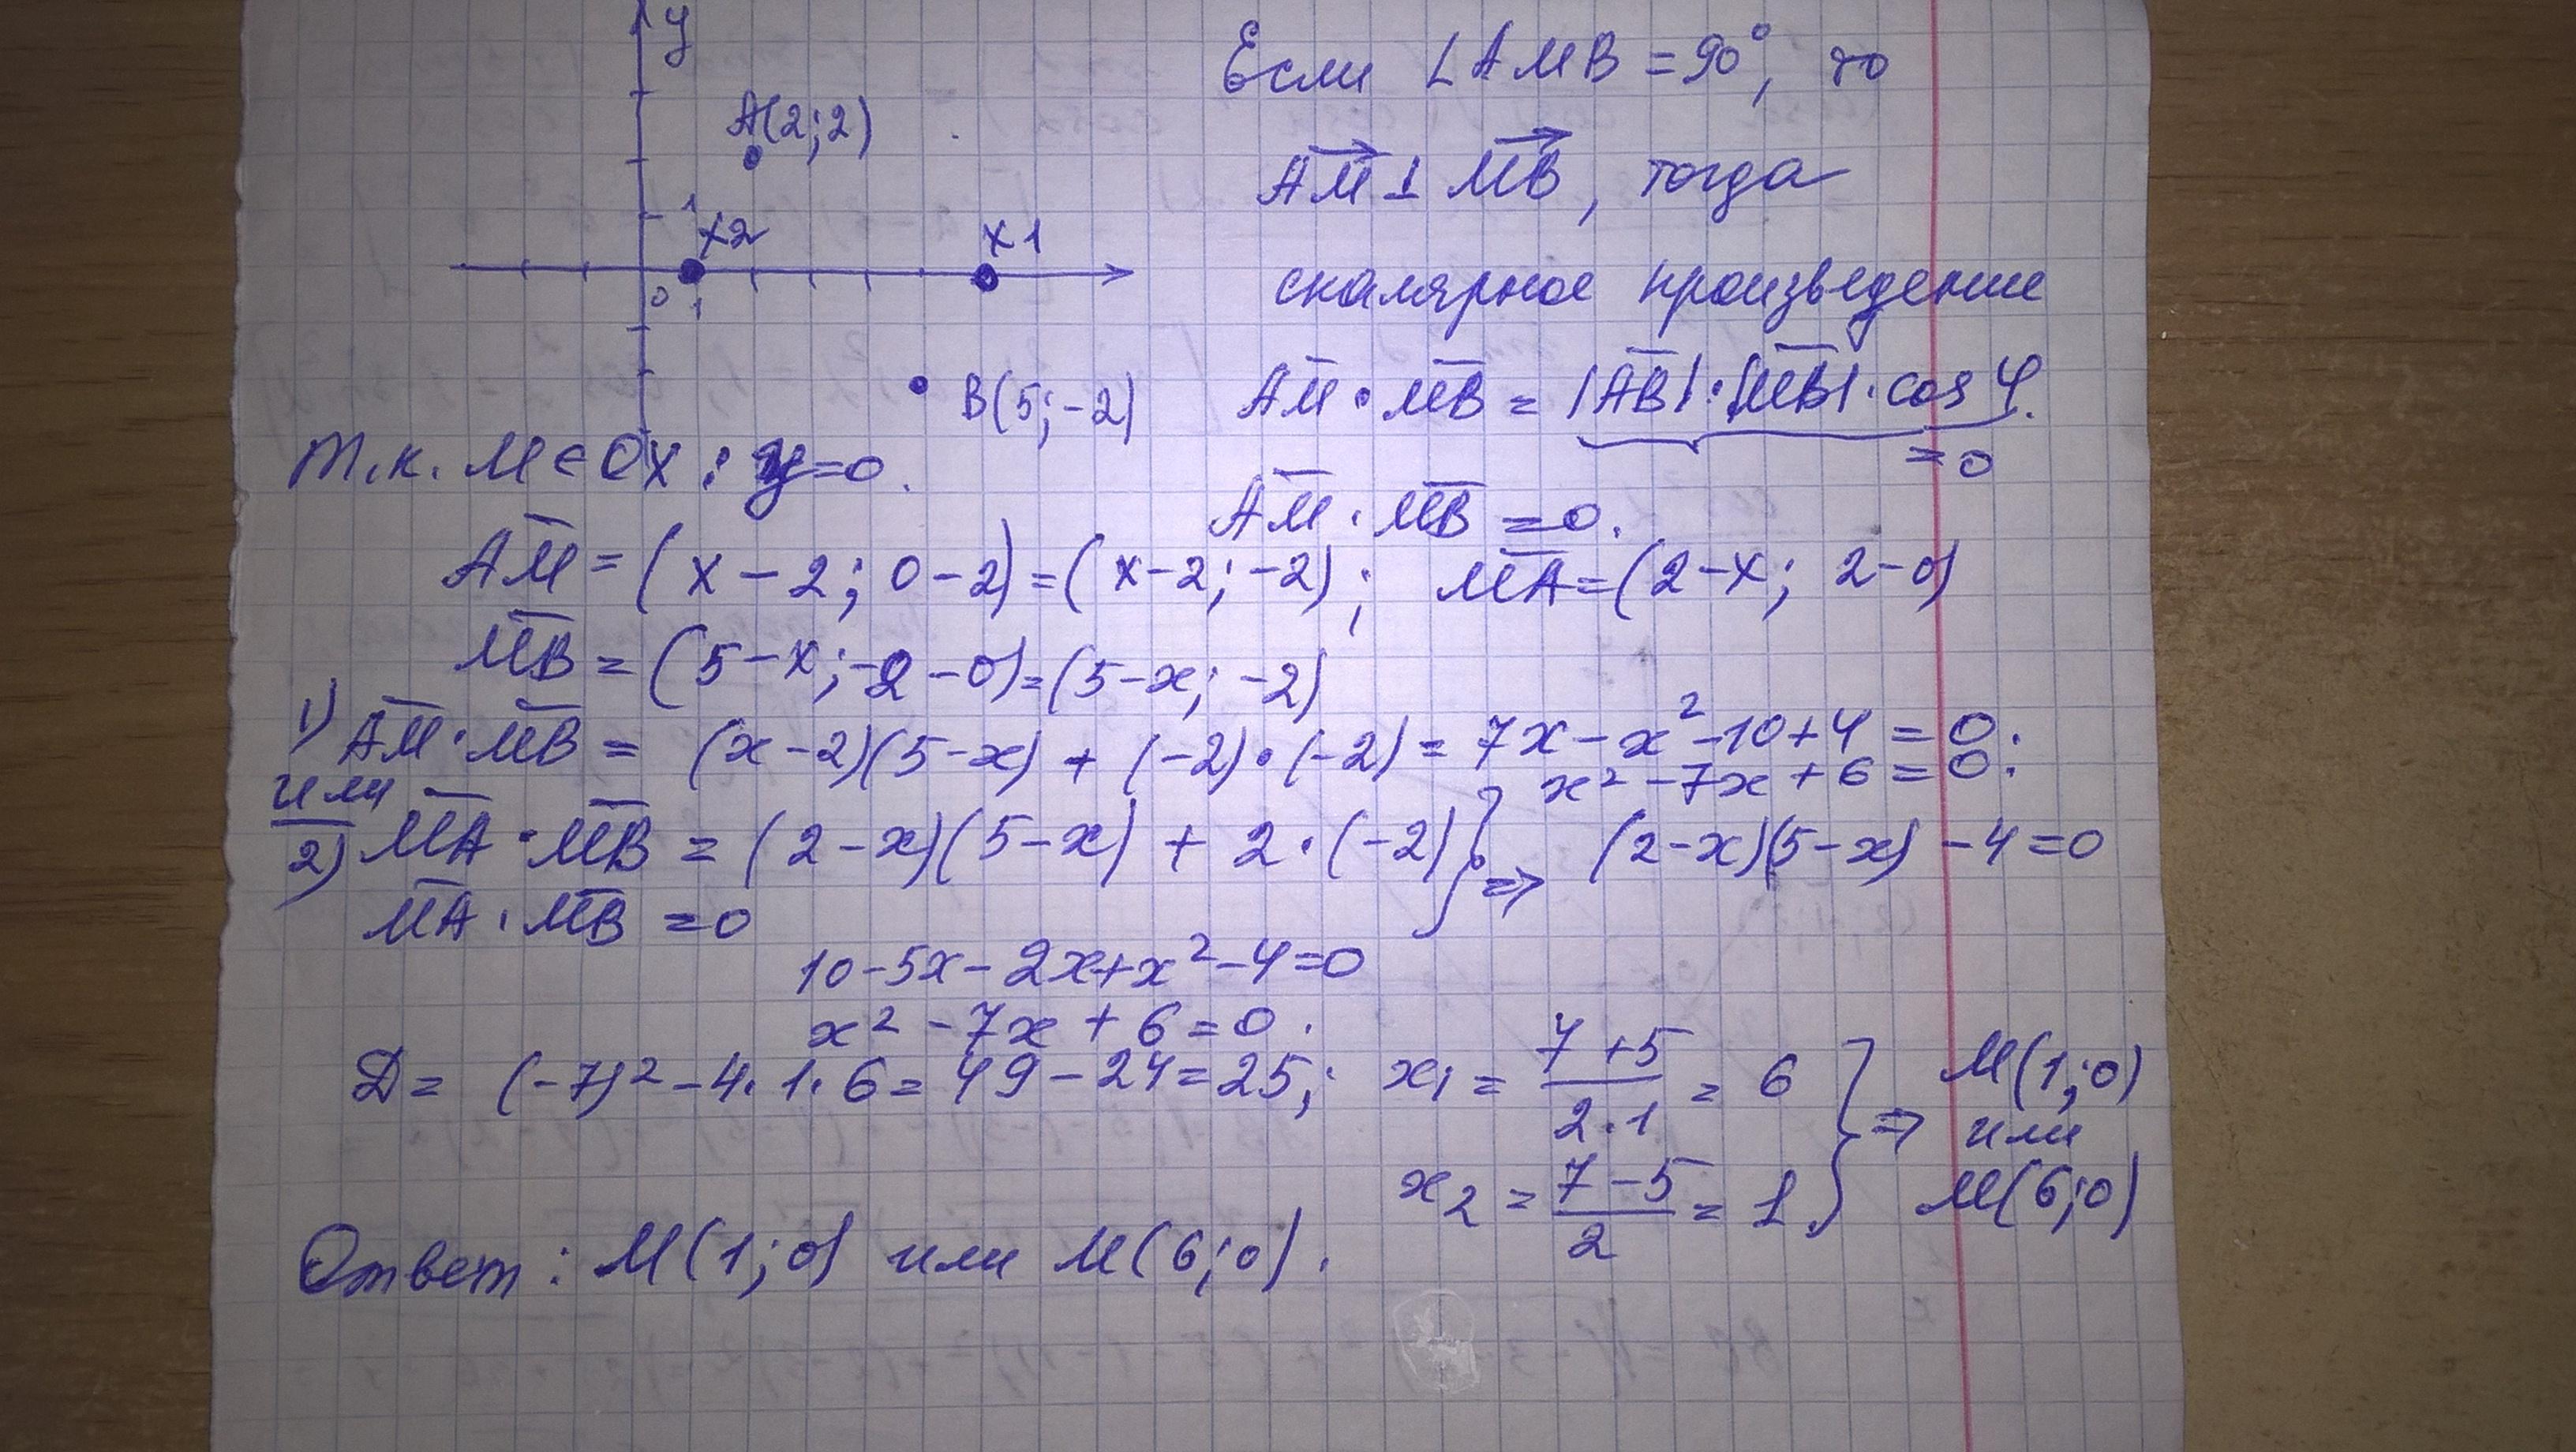 y
A(2;2)
1
x2
x1
0
1
B(5;-2)
Если ∠AMB = 90°, то
AM ⊥ MB, тогда
скалярное произведение
AM · MB = |AB| · |MB| · cos φ.
= 0
AM · MB = 0.
Т.к. M ∈ Ox : y = 0.
AM = (x - 2; 0 - 2) = (x - 2; -2); MA = (2 - x; 2 - 0)
MB = (5 - x; -2 - 0) = (5 - x; -2)
1) AM · MB = (x - 2)(5 - x) + (-2) · (-2) = 7x - x² - 10 + 4 = 0;
x² - 7x + 6 = 0;
или
2) MA · MB = (2 - x)(5 - x) + 2 · (-2) } ⇒ (2 - x)(5 - x) - 4 = 0
MA · MB = 0
10 - 5x - 2x + x² - 4 = 0
x² - 7x + 6 = 0.
D = (-7)² - 4 · 1 · 6 = 49 - 24 = 25; x₁ = (7 + 5)/(2 · 1) = 6
x₂ = (7 - 5)/2 = 1 } ⇒ M(1; 0)
или
M(6; 0)
Ответ: M(1; 0) или M(6; 0).